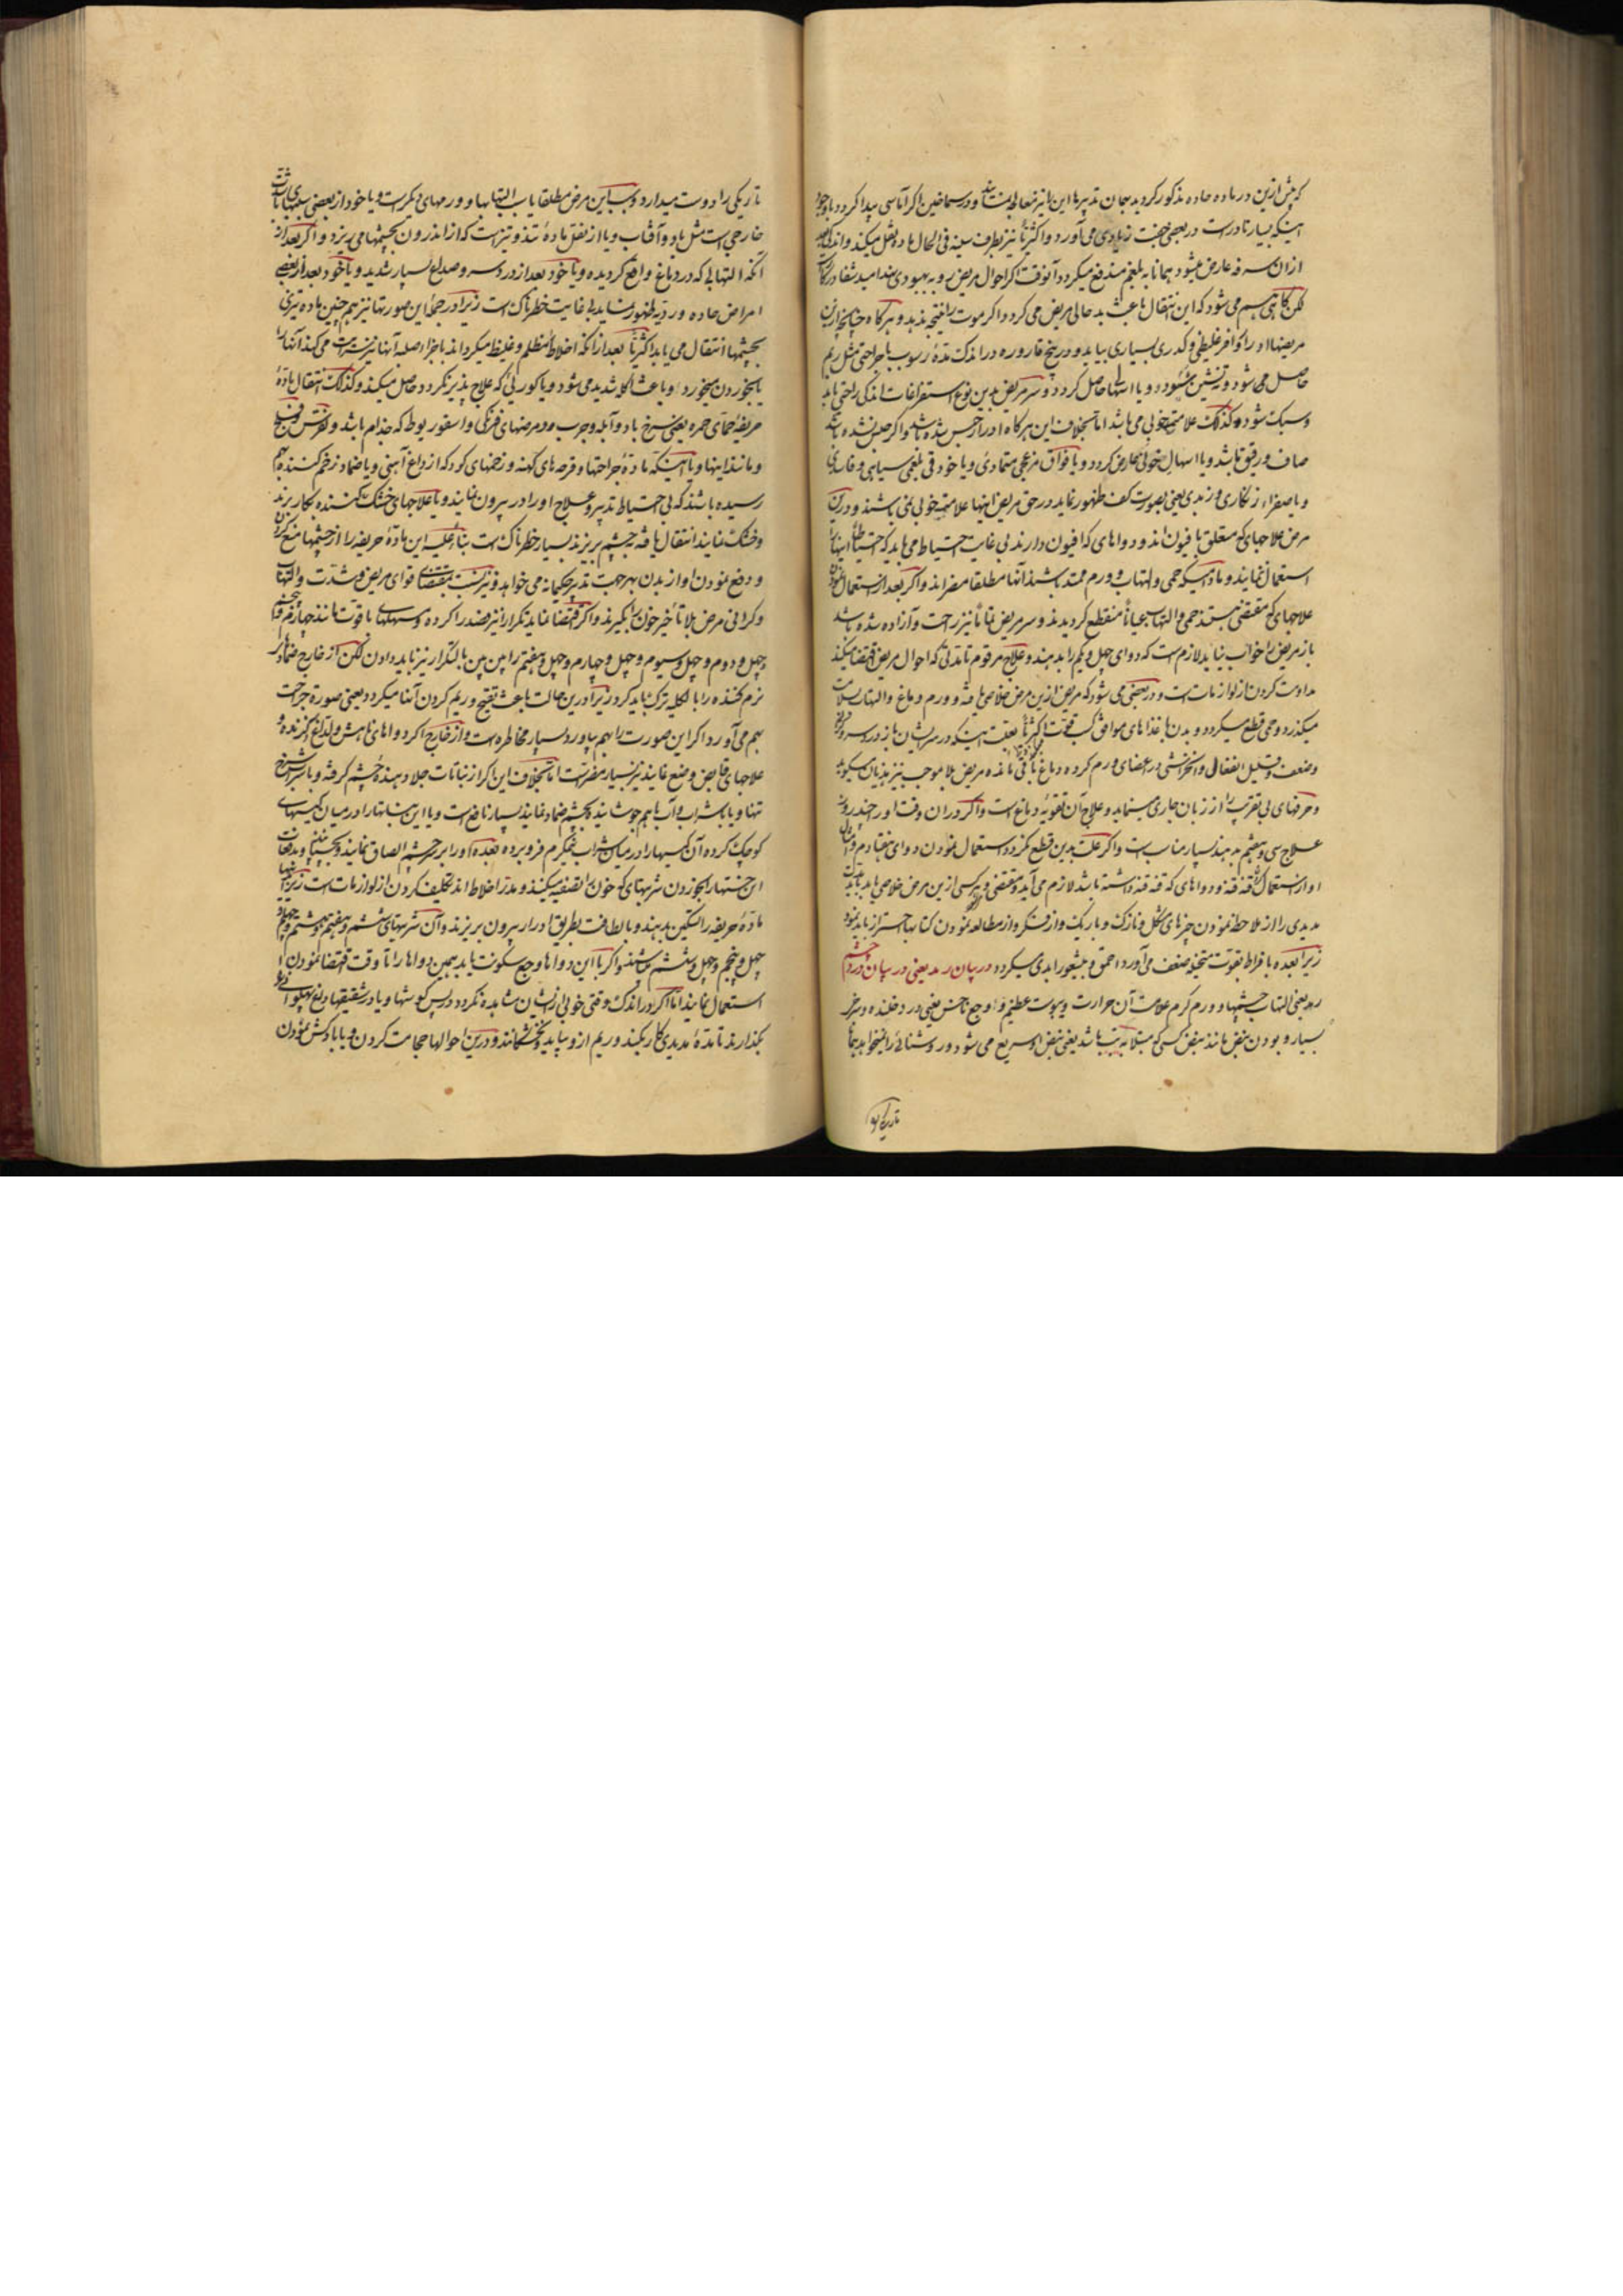 که پیش ازین در ماده حاده مذکور گردید بهمان تدبیرها این را نیز معالجه باید و در سماخین اگر آماسی پیدا گردد باوجود
اینکه بسیار نادرست در بعضی خفت زیادی می آورد و اکثریا نیز بطرف سینه فی الحال ماده نقل میکند و اندکی بعد
ازان سرفه عارض میشود همانا به بلغم مندفع میگردد آنوقت اگر احوال مریض رو به بهبودی نهد امید شفا در کار است
لکن گاهی هم می شود که این انتقال باعث بد حالی مریض می گردد و اکثر موت را نتیجه بدید و هرگاه چنانچه ازین
مرضها او را کوافر غلیظی و کدری بسیاری بیاید و در بیخ قاروره در اندک مدة رسوب با جراحتی مثل ریم
حاصل می شود و ته نشین شود و یا اسهالها حاصل گردد و سر مریض بدین نوع استفراغات اندکی راحتی یابد
و سبک شود و کذلک علامت خوبی می باشد اما بخلاف این هرگاه ادرار حبس شده باشد و اگر حبس نشده باشد
صاف و رقیق باشد و یا اسهال خونی عارض گردد و یا فواق مزعجی متمادی و یا خود قی بلغمی سیاهی و
و یا صفراء زنگاری و زبدی یعنی بصورت کف ظهور نماید در حق مریض اینها علامت خوبی نمی باشند و درین
مرض علاجهای که متعلق بافیون اند و دواهای که افیون دارند بی غایت احتیاط می باید که احتیاطاً اینها را
استعمال نمایند و مادامیکه حمی و التهاب و ورم ممتد باشند آنها مطلقا مضراند و اگر بعد از استعمال نمودن
علاجهای که مقتضی هستند حمی و التهاب عیاناً منقطع گردیدند و سر مریض تماماً نیز راحت و آزاده شده باشد
باز مریض را خواب نیاید لازم است که دوای چهل و یکم را بدهند و علاج مرقوم تا مدتی که احوال مریض اقتضا میکند
مداومت کردن از لوازمات است و در بعضی می شود که مریض ازین مرض خلاصی یافته و ورم دماغ و التهاب بسلامت
میگذرد و حمی قطع میگردد و بدن با غذاهای موافق کسب قوت اکثریا بعلت اینکه در سرایشان باز درد سر و
وضعف و قلیل انفعال و انخراشی در اعضای ورم کرده دماغ باقی مانده مریض بلا موجب نیز هذیان میگوید
و حرفهای بی تقریب را از زبان جاری مینماید و علاج آن تقویه دماغ است و اگر دران وقت او را چند روز
علاج سی و هفتم بدهند بسیار مناسب است و اگر علت بدین قطع نگردد استعمال نمودن دوای هفتادم و
او از استعمال قنه قنه و دواهای که قنه قنه داشته باشد لازم می آید و مقتضی و هرکسی ازین مرض خلاصی یابد باید مدت
مدیدی را از ملاحظه نمودن چیزهای مشکل و نازک و باریک و از فکر و از مطالعه نمودن کتابها احتراز باید نمود
زیرا بعده بافراط بقوت متخیله ضعف می آورد و احمق و بیشعور ابدی میگردد در بیان رمد یعنی در بیان درد چشم
رمد یعنی التهاب چشمها و ورم گرم علامت آن حرارت و یبوست عظیم و وجع ناخس یعنی درد خلنده و سرخی
بسیار و بودن نبض مانند نبض کسی که مبتلا به تب باشد یعنی نبض او سریع می شود و روشنائی را نمیخواهد بنا
تاریکی را
تاریکی را دوست میدارد و سبب این مرض مطلقا یا سبب التهابها و ورمهای دیگر است و یا خود از بعضی سببهای
خارجی است مثل باد و آفتاب و یا از نقل مادة تند و تیز است که از اندرون بچشمها می ریزد و اگر بعد از
آنکه التهابی که در دماغ واقع گردیده و یا خود بعد از درد سر و صداع بسیار شدید و یا خود بعد از بعضی
امراض حاده و ردیه ظهور نماید بی غایت خطرناک است زیرا در جمله این صورتها نیز هم چنین ماده تیزی
بچشمها انتقال می یابد اکثریا بعد از آنکه اخلاط منظلم و غلیظ میگرداند با جزاء صلبه آنها نیز سرایت می کند آنها را
بالخوردن میخورد و یا باعث الکا شدید می شود و یا کوری که علاج پذیر نگردد حاصل میکند و کذلک انتقال مادة
حریفة حمای حمره یعنی سرخ باد و آبله و جرب و مرضهای فرنگی و اسقوربوط که جذام باشد و نقرس و
و مانند اینها و یا اینکه مادة جراحتها و قرحه های کهنه و زخمهای کود که از داغ آهنی و یا ضماد زخم کننده بهم
رسیده باشند که بی احتیاط تدبیر و علاج او را در بیرون نمایند و یا علاجهای خشک کننده بکار برند
و خشک نمایند انتقال یافته بچشم بریزند بسیار خطرناک است بناءً علیه این مادة حریفه را از چشمها منع کردن
و دفع نمودن او از بدن بهر جهت تدبیر حکیمانه می خواهد و نیز نسبت بمقتضای قوای مریض و شدت و التهاب
و گرانی مرض بلا تأخیر خون را بگیرند و اگر اقتضا نماید تکرار نیز فصد را کرده و مسهلهای با قوت مانند چهارم
چهل و دوم و چهل و سیوم و چهل و چهارم و چهل و هفتم را پس پس بالتکرار نیز باید دادن لکن از خارج ضمادهای
نرم کننده را بالکلیه ترک باید کرد زیرا درین حالت باعث تقیح و ریم کردن آنها میگردد یعنی صورة جراحت
بهم می آورد اگر این صورت را بهم بیاورد بسیار مخاطره است و از خارج اگر دواهای ناهش ولداغ و گزنده و
علاجهای قابض وضع نمایند نیز بسیار مضر است اما بخلاف این اگر از نباتات جلا دهندة چشم گرفته و با شراب سرخ
تنها و یا با شراب و آب باهم جوشانیده بچشم ضماد نمایند بسیار نافع است و یا این نباتها را در میان کیسهای
کوچک کرده آن کیسها را در میان شراب نیمگرم فرو برده بعده او را بر چشم الصاق نمایند و بچسبانند و بدفعات
این خسته را بجز دادن شربتهای که خون را تصفیه میکنند و مدر اخلاط اند تکلیف کردن از لوازمات است زیرا اینها
مادة حریفه را تسکین بدهند و بالطافت بطریق ادرار بیرون بریزند و آن شربتهای ششم و هفتم و هشتم و چهارم
چهل و پنجم و چهل و ششم باشند و اگر با این دواها وجع سکونت یابد بهمین دواها را تا وقت اقتضا نمودن
استعمال نمایند اما اگر در اندک وقتی خوبی ازیشان مشاهده نگردد در پس گوشها و یا در شقیقها داغ پهلوای
بگذارند تا مدة مدیدی کار بکند و ریم ازو بیاید و نخشکانند و درین احوالها حجامت کردن و یا بادکش نمودن